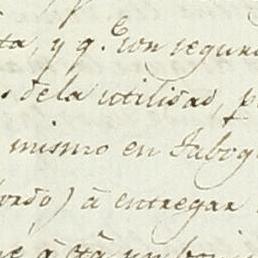 ta, y q.e con segur
. dela utilidad, p
mismo en Tabog
ordo) â entregar